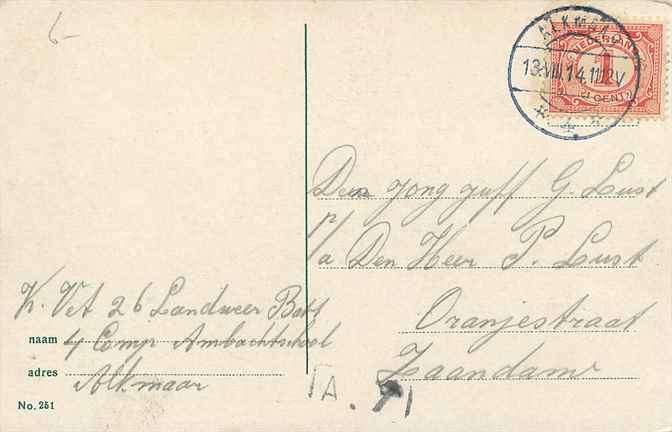 6-
ALKMAAR
13.VIII.14.11-12V
NEDERLAND
1
CENT
Den jong juff G. Lust
p/a Den Heer P. Lust
Oranjestraat
Zaandam
K. Vet 26 Landweer Batt
naam 4 Comp Ambachtschool
adres Alkmaar
No. 251
A.